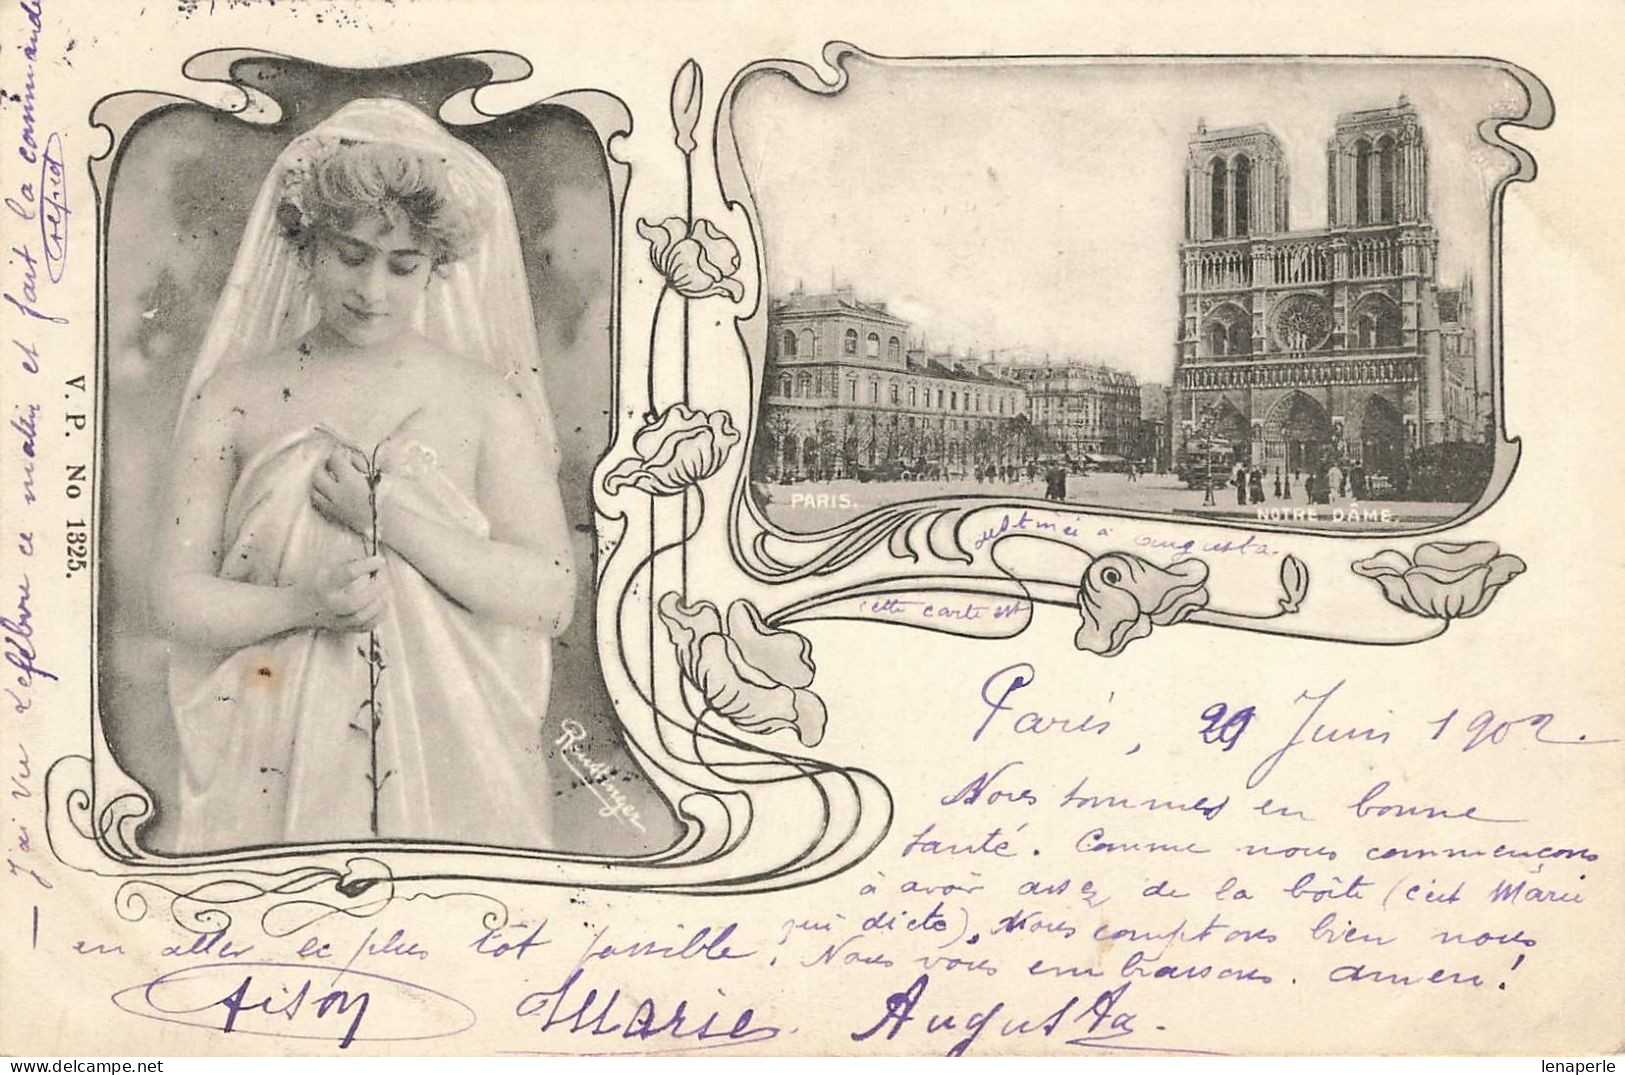 J'ai vu Lefebvre ce matin et fait la commande
V. P. No 1325.
Reutlinger
PARIS.
NOTRE DÂME.
cette carte est
destinée à Augusta.
Paris, 29 Juin 1902.
Nous sommes en bonne
santé. Comme nous commençons
à avoir assez de la boîte (c'est Marie
qui dicte), Nous comptons bien nous
en aller le plus tôt possible. Nous vous embrassons. Amen!
Marie Augusta.
lenaperle